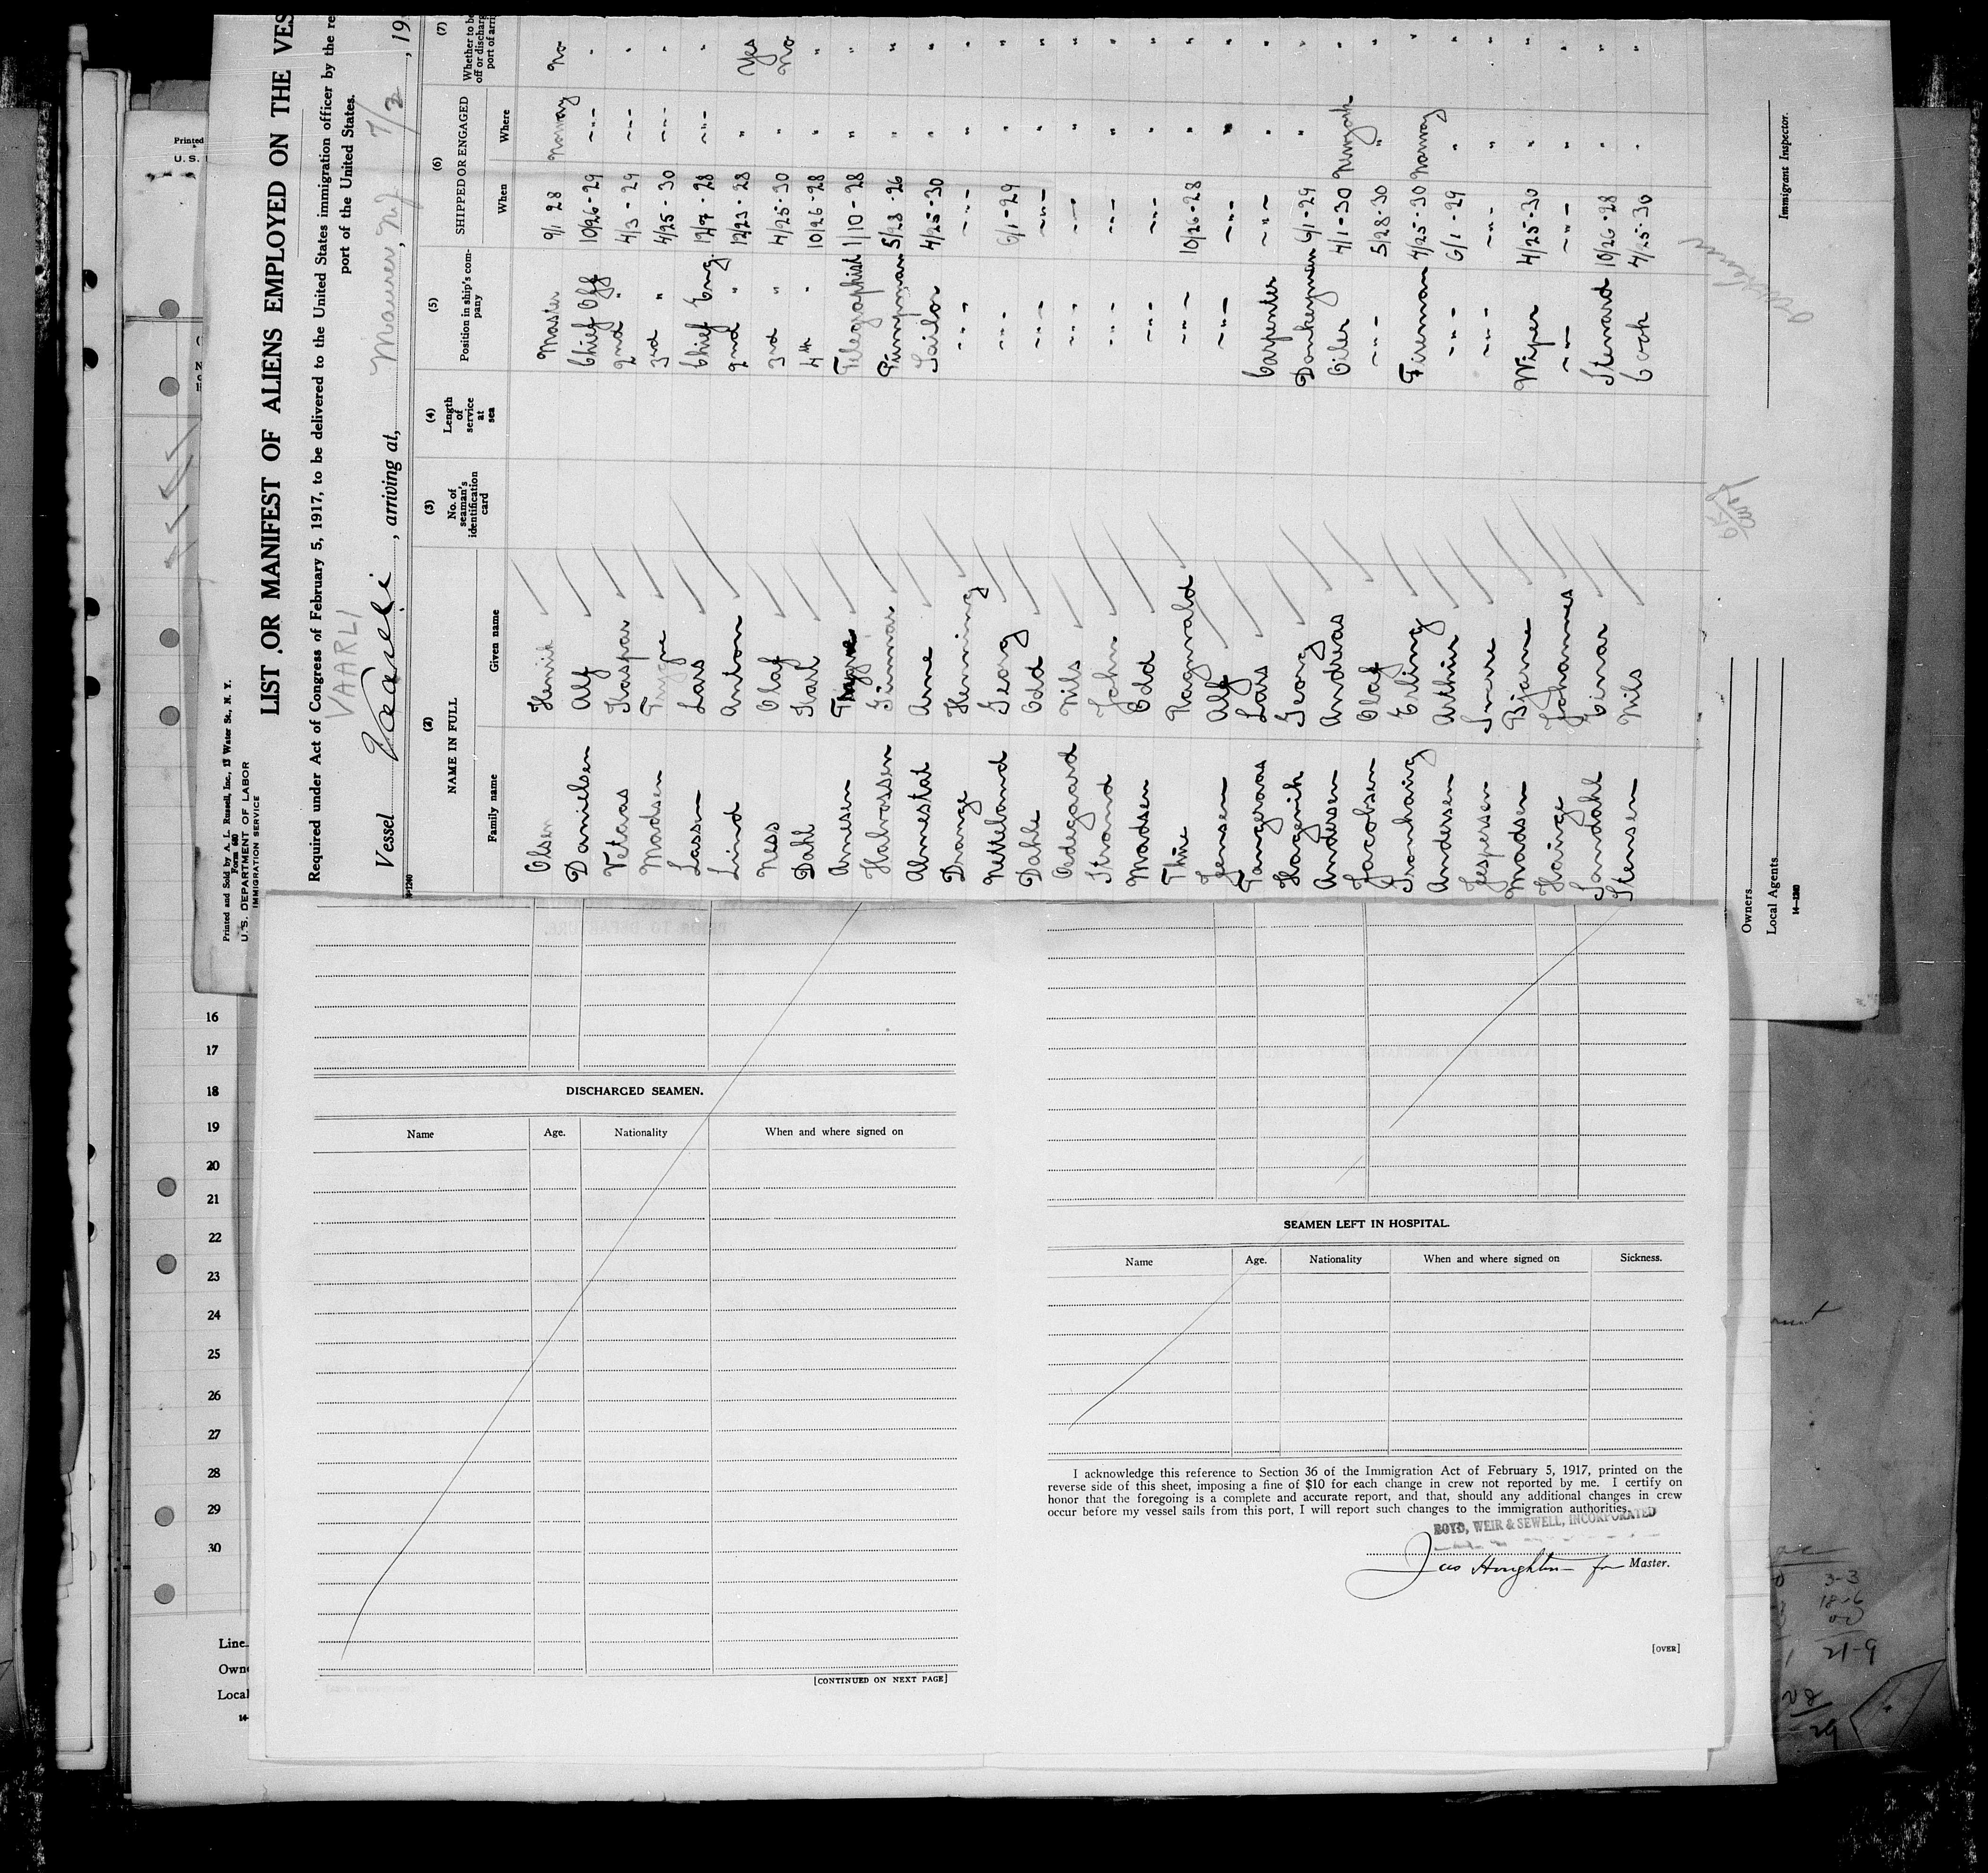 Printed and Sold by A. L. Russell, Inc., 13 Water St., N. Y.
Form 680
U. S. DEPARTMENT OF LABOR
IMMIGRATION SERVICE
LIST OR MANIFEST OF ALIENS EMPLOYED ON THE VES
Required under Act of Congress of February 5, 1917, to be delivered to the United States immigration officer by the re
port of the United States.
VAARLI
Vessel Vaarli, arriving at, Maurer, N.J. 7/2, 19
(2) (3) (4) (5) (6) (7)
NAME IN FULL No. of seaman's identification card Length of service at sea Position in ship's company SHIPPED OR ENGAGED Whether to be
off or discharg
port of arri
Family name Given name When Where
Olsen Henrik Master 9/1 28 Norway No
Danielsen Alf Chief Off 10/26-29 -"- "
Vetaas Kaspar 2nd " 4/3-29 -"- "
Madsen Trygve 3rd " 4/25-30 -"- "
Lassen Lars Chief Eng. 12/7-28 -"- "
Lind Anton 2nd " 12/23-28 " Yes
Ness Olaf 3rd " 4/25-30 " No
Dahl Karl 4th " 10/26-28 " "
Arnesen Trygve Telegraphist 1/10-28 " "
Halvorssen Gunnar Pumpman 5/28-26 " "
Almestat Arne Sailor 4/25-30 " "
Drange Henning -"- -"- " "
Netteland Georg -"- 6/1-29 " "
Dahle Odd -"- -"- " "
Oedegaard Nils -"- -"- " "
Strand John -"- -"- " "
Madsen Odd -"- -"- " "
Thue Ragnvald -"- 10/26-28 " "
Jensen Alf -"- -"- " "
Tangeraas Lars Carpenter -"- " "
Hagevik Georg Donkeyman 6/1-29 " "
Andersen Andreas Oiler 4/1-30 Newyork "
Jacobsen Olaf -"- 5/28-30 " "
Tronhaug Erling Fireman 4/25-30 Norway "
Andersen Arthur -"- 6/1-29 " "
Jespersen Snure -"- -"- " "
Madsen Bjarne Wiper 4/25-30 " "
Hauge Johannes -"- -"- " "
Sandahl Einar Steward 10/26-28 " "
Stensen Nils Cook 4/25-30 " "
Immigrant Inspector.
Owners
Local Agents
14—1240
Printed
U. S.
16
17
18
19
20
21
22
23
24
25
26
27
28
29
30
Line
Owne
Local
14-
DISCHARGED SEAMEN.
Name Age. Nationality When and where signed on
[CONTINUED ON NEXT PAGE]
SEAMEN LEFT IN HOSPITAL.
Name Age. Nationality When and where signed on Sickness.
I acknowledge this reference to Section 36 of the Immigration Act of February 5, 1917, printed on the
reverse side of this sheet, imposing a fine of $10 for each change in crew not reported by me. I certify on
honor that the foregoing is a complete and accurate report, and that, should any additional changes in crew
occur before my vessel sails from this port, I will report such changes to the immigration authorities.
BOYD, WEIR & SEWELL, INCORPORATED
Jas Houghton for Master.
[OVER]
3-3
18-6
21-9
29